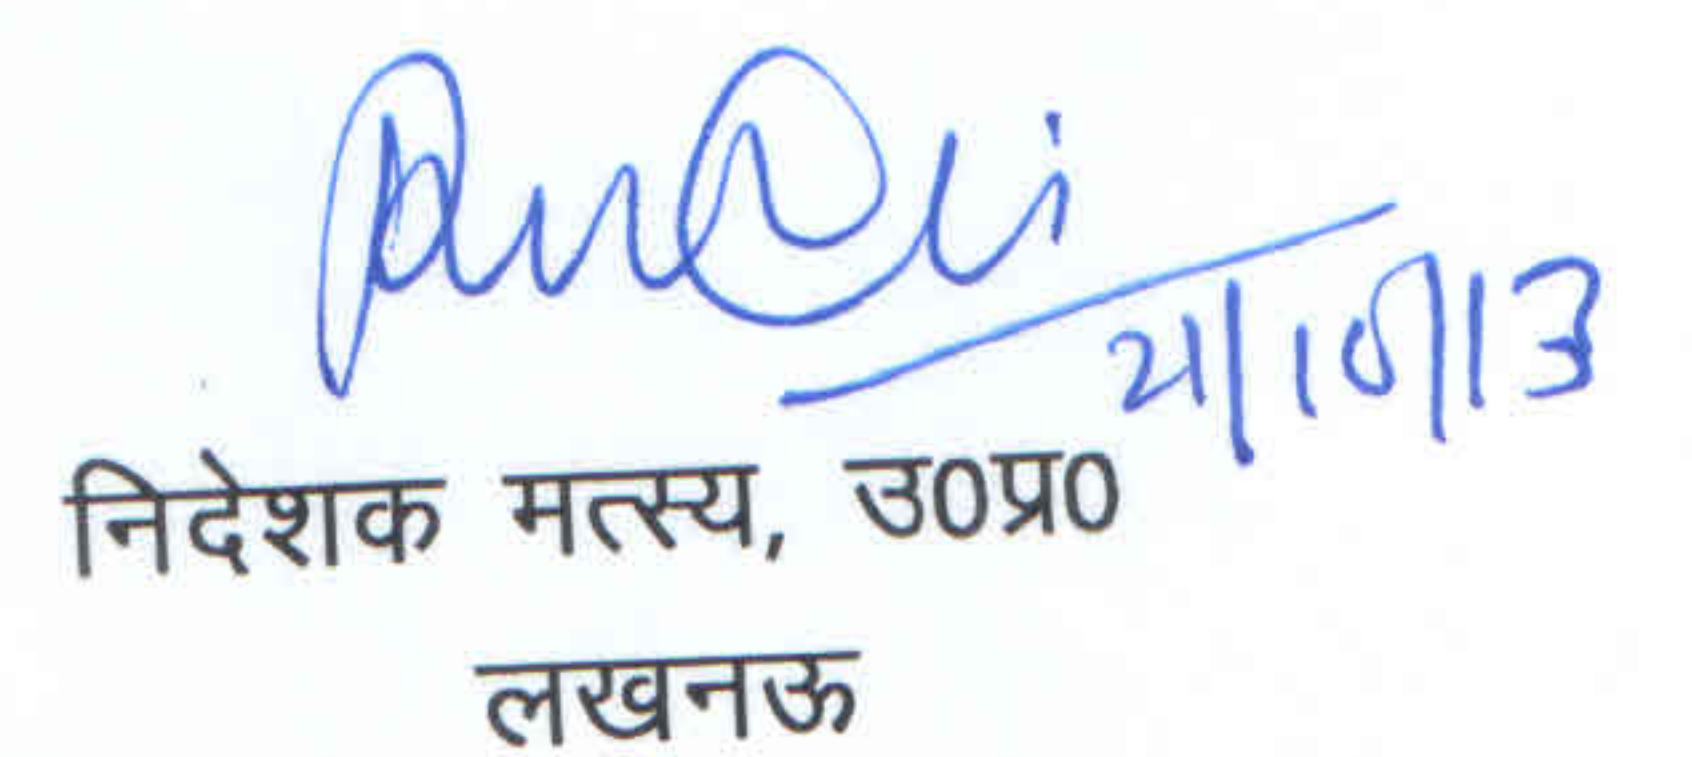 21/10/13
निदेशक मत्स्य, उ0प्र0
लखनऊ